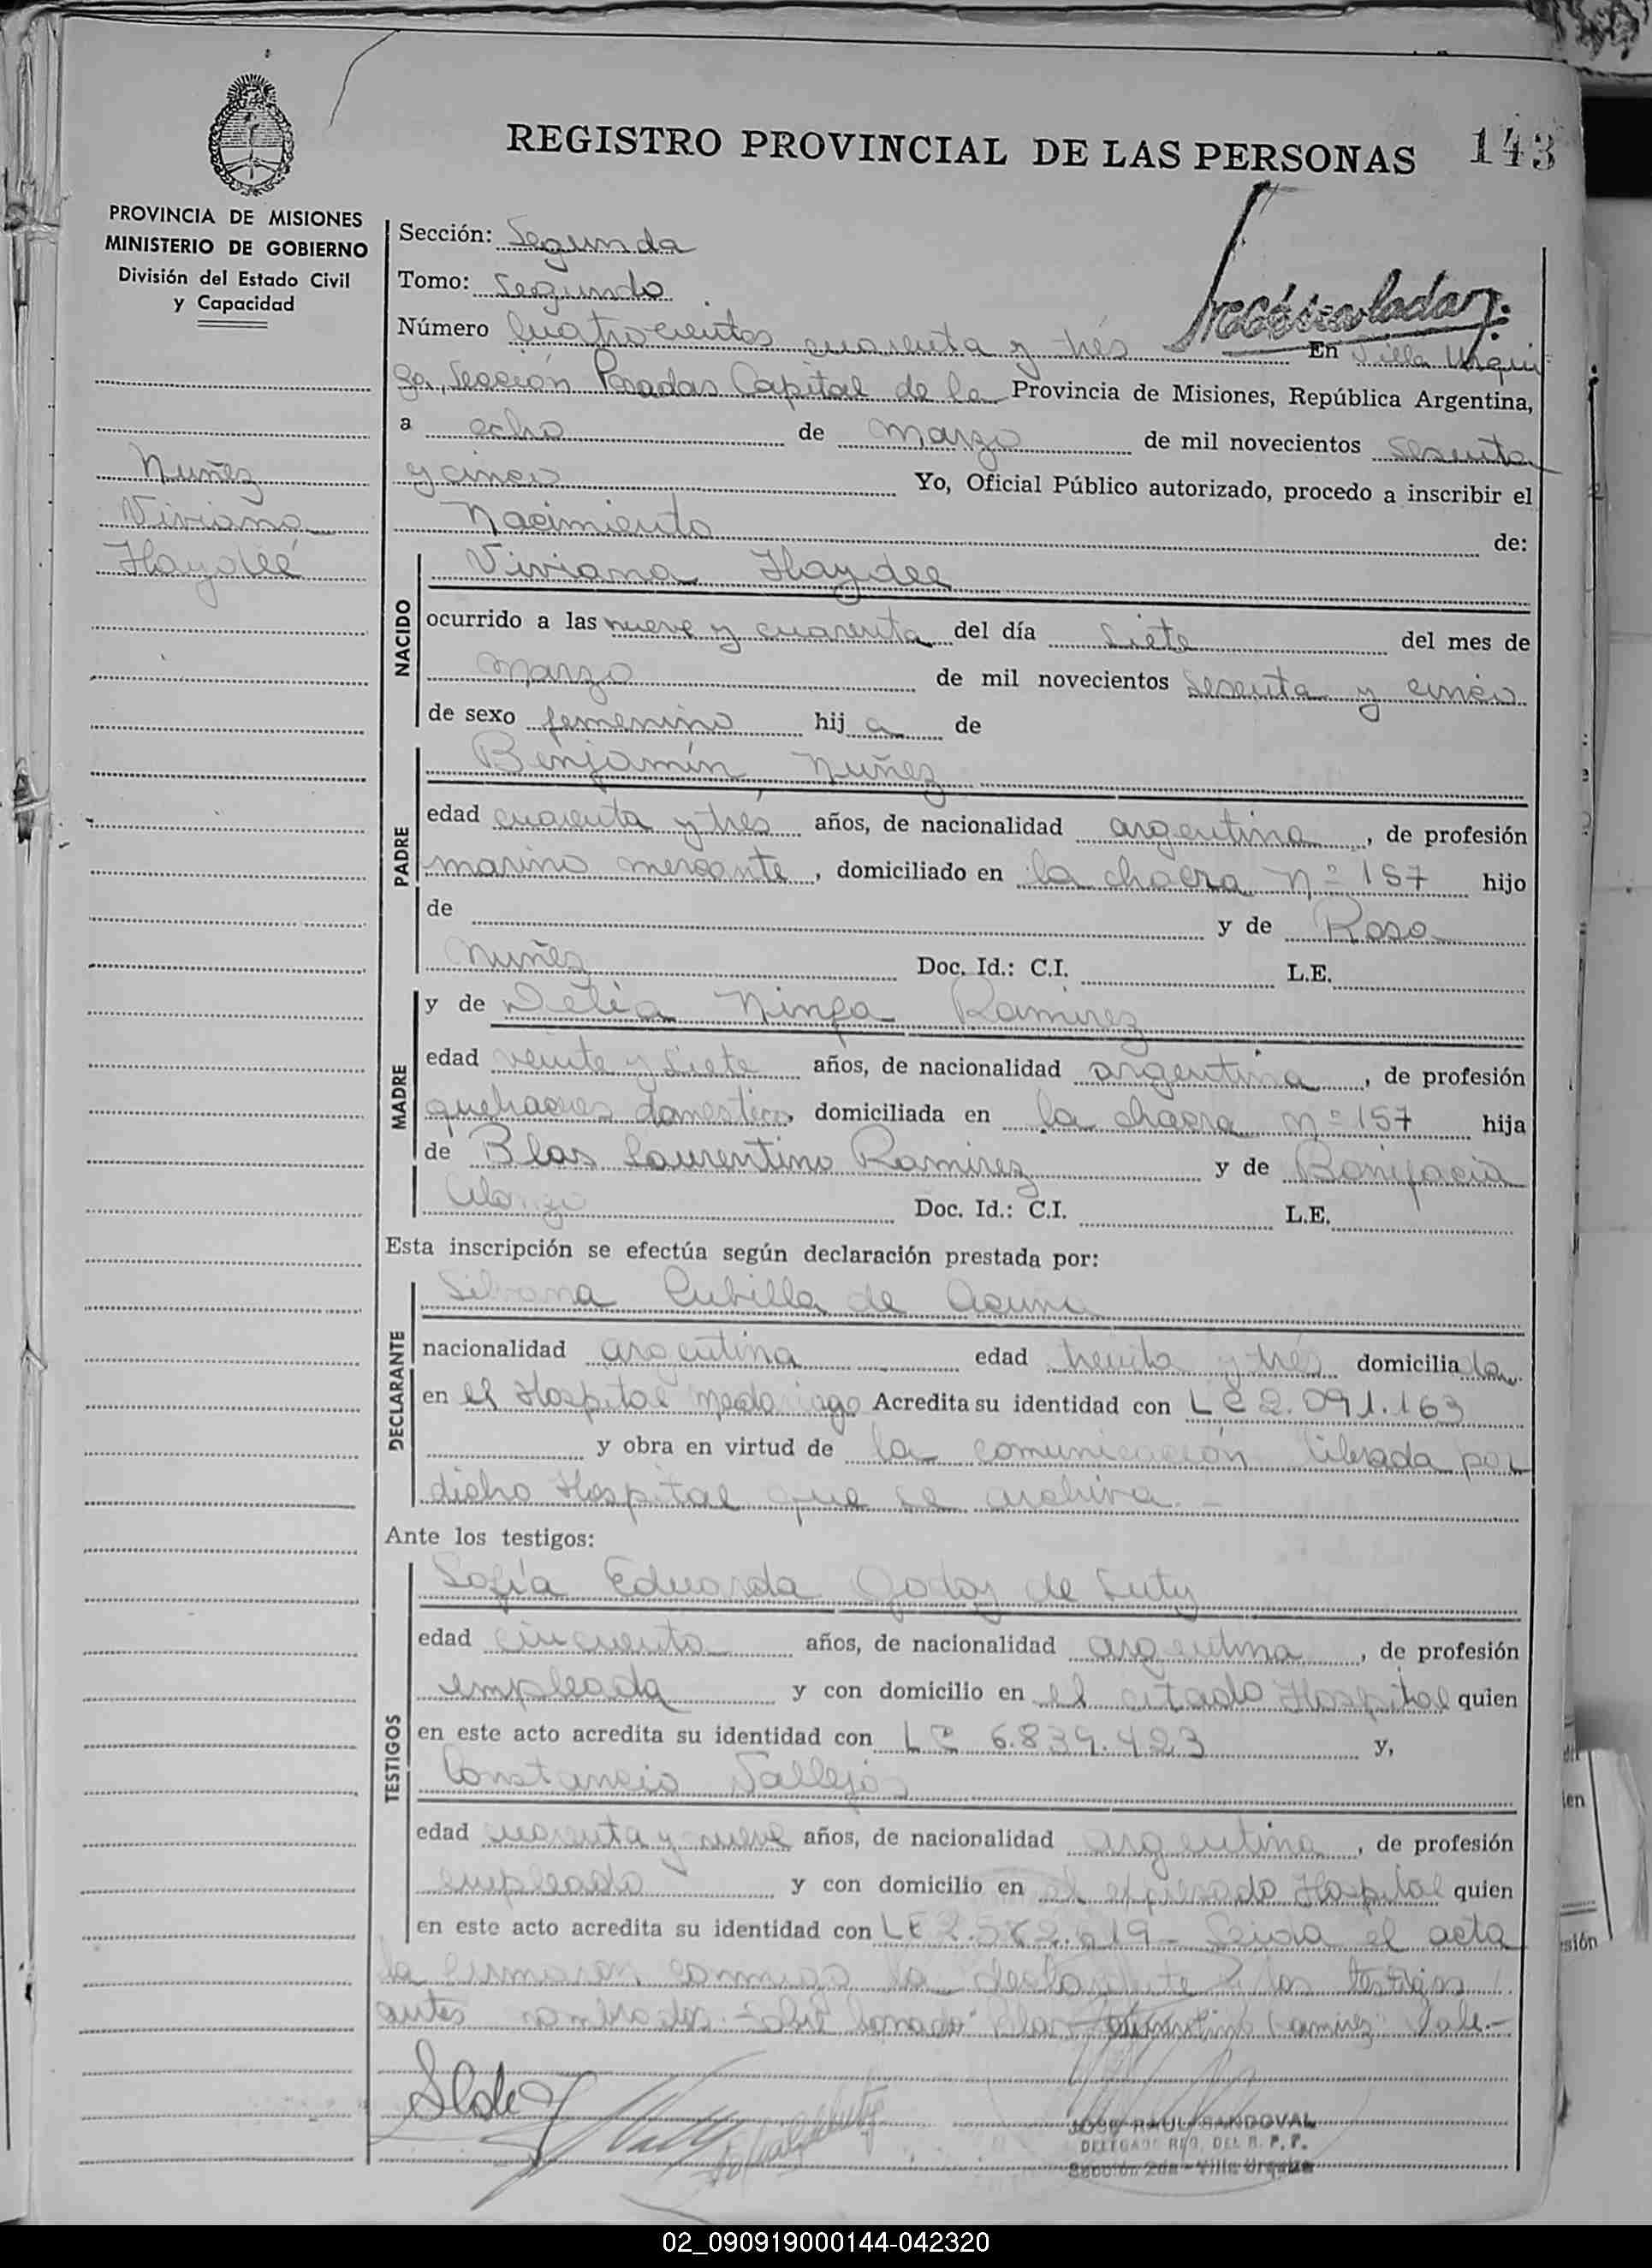 REGISTRO PROVINCIAL DE LAS PERSONAS 143
PROVINCIA DE MISIONES
MINISTERIO DE GOBIERNO
División del Estado Civil
y Capacidad
Sección: Segunda
Tomo: Segundo
Número Cuatrocientos cuarenta y trés En Villa Urqui
za, Sección Posadas Capital de la Provincia de Misiones, República Argentina,
a ocho de marzo de mil novecientos sesenta
y cinco Yo, Oficial Público autorizado, procedo a inscribir el
Nacimiento de:
Nuñez
Viviana
Haydeé
NACIDO
Viviana Haydee
ocurrido a las nueve y cuarenta del día siete del mes de
marzo de mil novecientos sesenta y cinco
de sexo femenino hija de
PADRE
Benjamín Nuñez
edad cuarenta y trés años, de nacionalidad argentina, de profesión
marino mercante, domiciliado en la chacra nº 157 hijo
de y de Rosa
Nuñez Doc. Id.: C.I. L.E.
MADRE
y de Delia Ninfa Ramirez
edad veinte y siete años, de nacionalidad argentina, de profesión
quehaceres domesticos, domiciliada en la chacra nº 157 hija
de Blas Laurentino Ramirez y de Bonifacia
Doc. Id.: C.I. L.E.
Esta inscripción se efectúa según declaración prestada por:
DECLARANTE
Cubilla de Acuña
nacionalidad argentina edad treinta y trés domiciliada
en el Hospital Madariaga Acredita su identidad con LC 2.091.163
y obra en virtud de la comunicación librada por
dicho Hospital que se archiva.-
Ante los testigos:
TESTIGOS
Sofía Eduarda Godoy de Luty
edad cincuenta años, de nacionalidad argentina, de profesión
empleada y con domicilio en el citado Hospital quien
en este acto acredita su identidad con LC 6.839.423 y,
Constancio Vallejos
edad cuarenta y nueve años, de nacionalidad argentina, de profesión
empleado y con domicilio en el expresado Hospital quien
en este acto acredita su identidad con LE - Leida el acta
la firmaron conmigo la declarante y los testigos
antes nombrados. Sobre borrado "Blas Laurentino Ramirez" Vale.-
JOSE RAUL SANDOVAL
DELEGADO REG. DEL R. P. P.
Sección 2da - Villa Urquiza
02_090919000144-042320